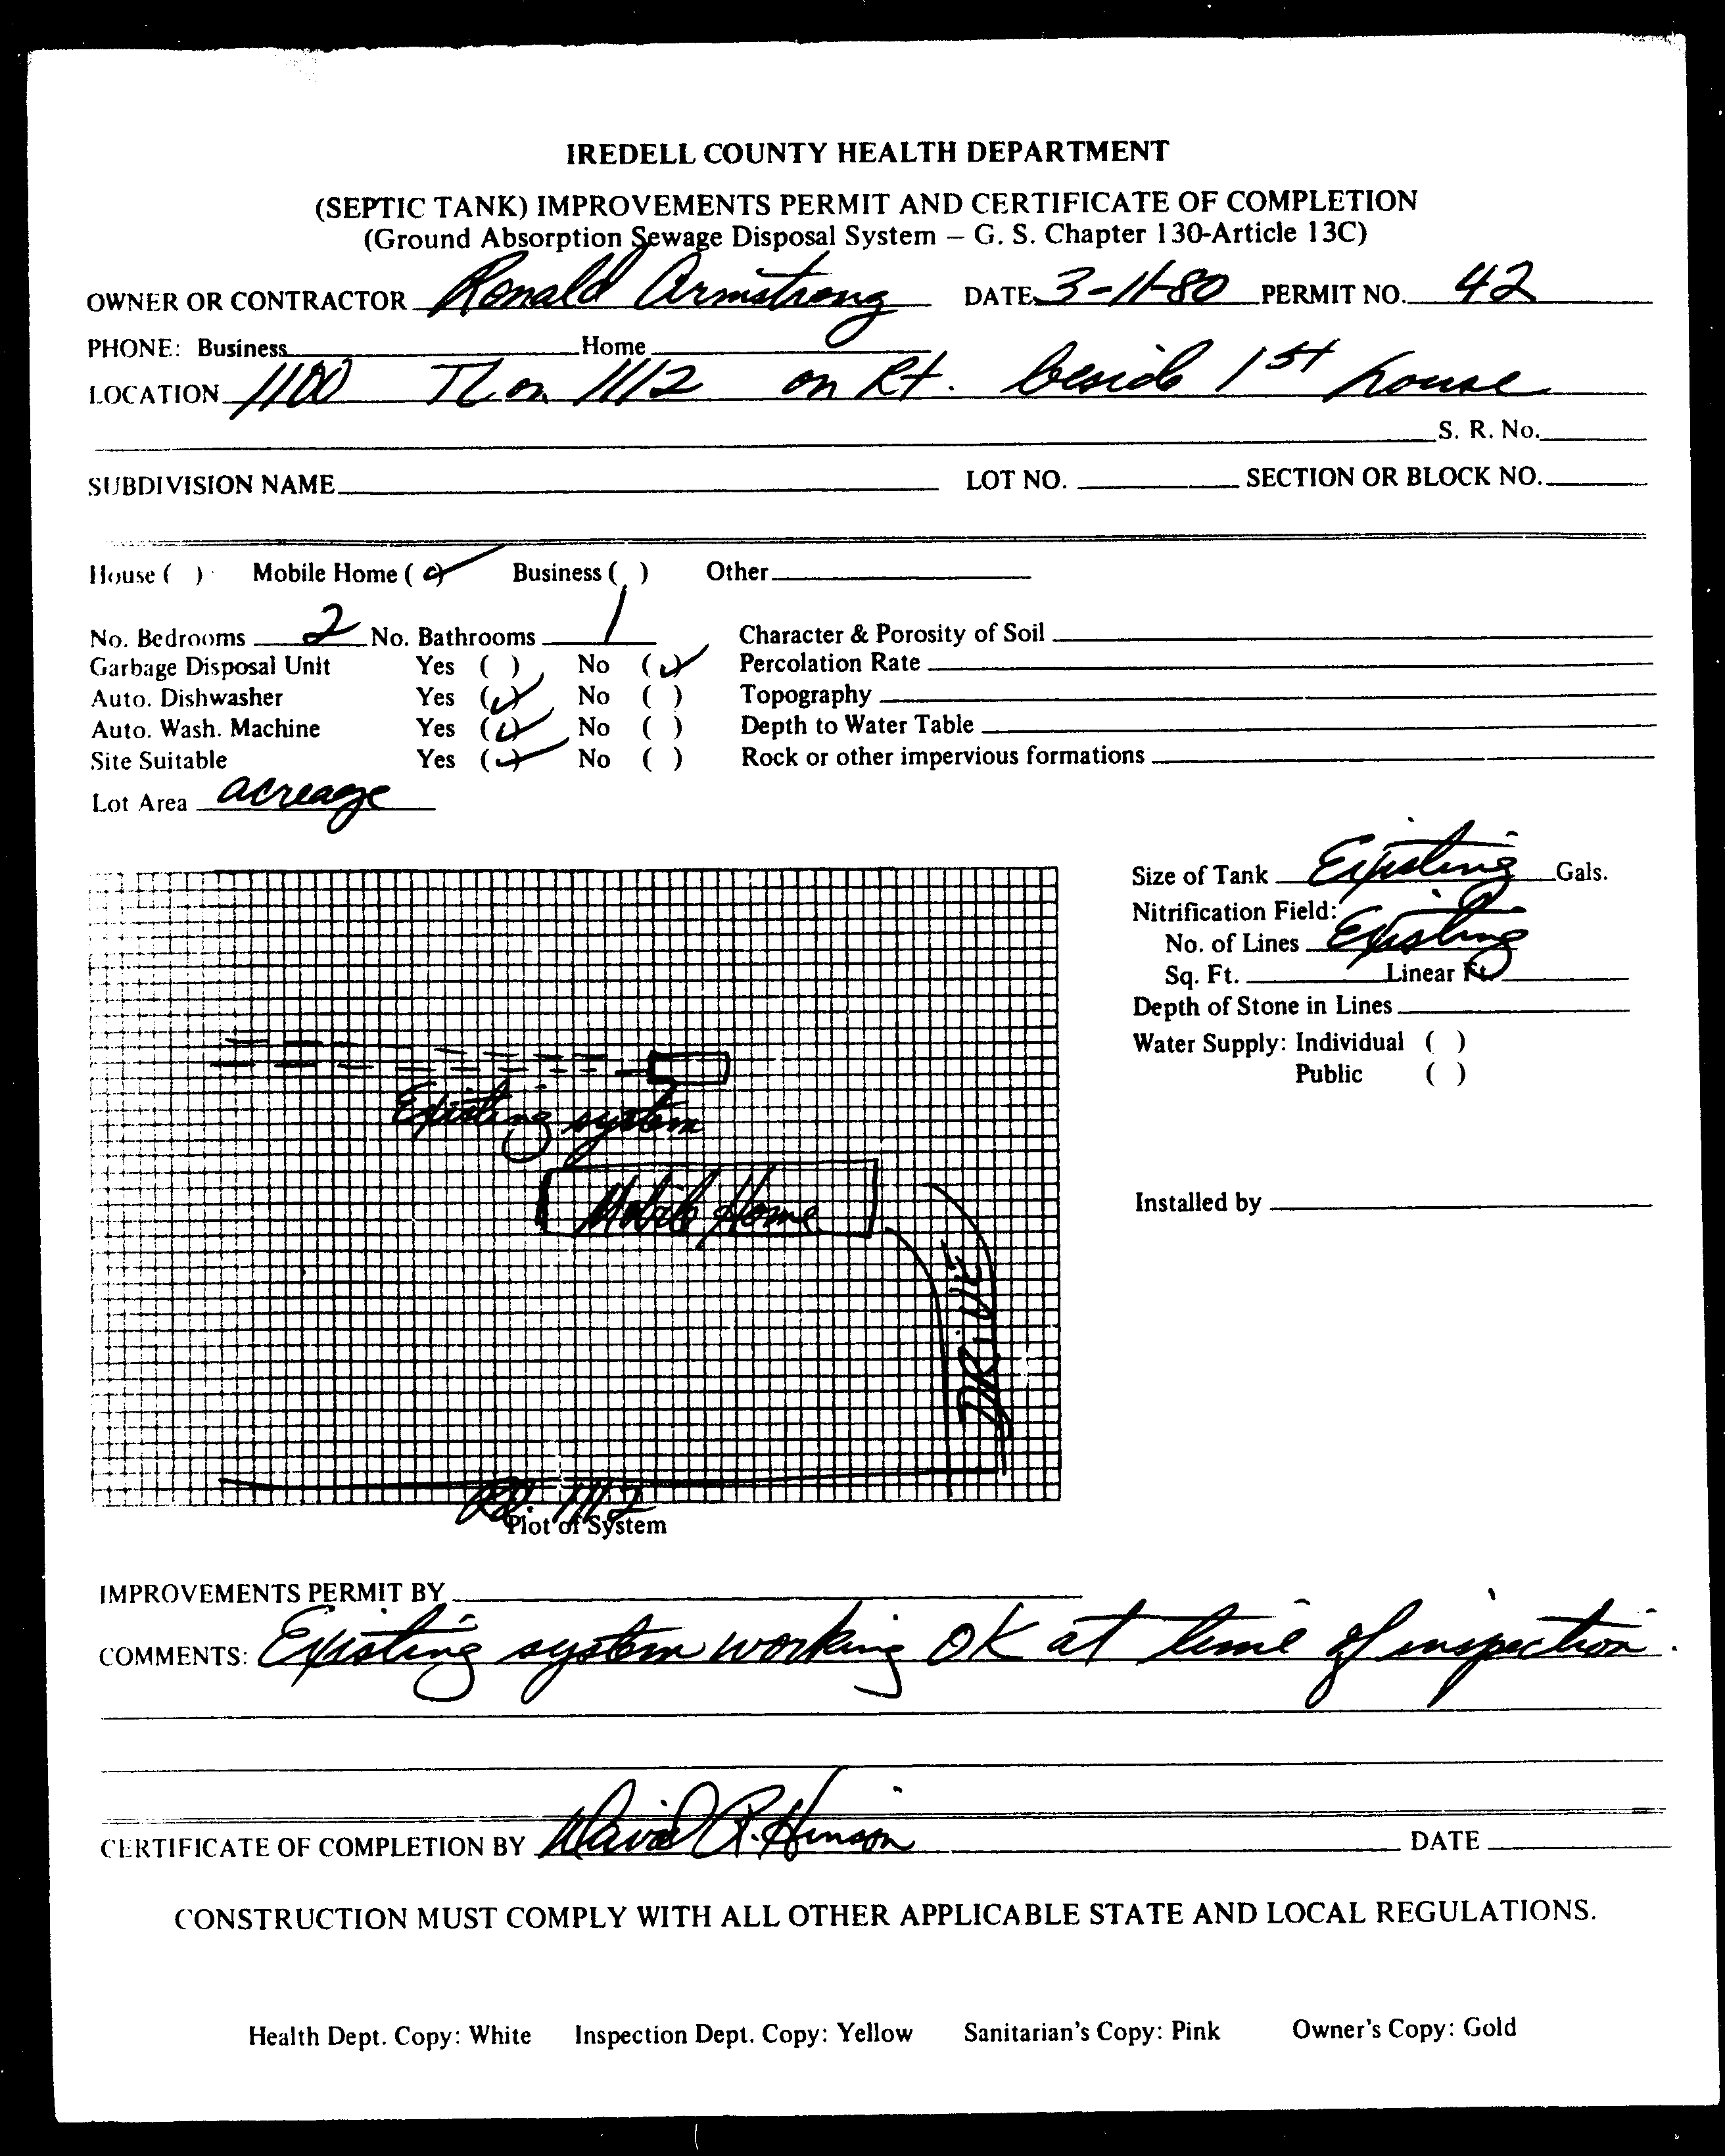 IREDELL COUNTY HEALTH DEPARTMENT
(SEPTIC TANK) IMPROVEMENTS PERMIT AND CERTIFICATE OF COMPLETION
(Ground Absorption Sewage Disposal System – G. S. Chapter 130-Article 13C)
OWNER OR CONTRACTOR Ronald Armstrong DATE 3-11-80 PERMIT NO. 42
PHONE: Business Home
LOCATION 1100 TL on 1112 on Rt. beside 1st house
S. R. No.
SUBDIVISION NAME LOT NO. SECTION OR BLOCK NO.
House ( ) Mobile Home (✓) Business ( ) Other
No. Bedrooms 2 No. Bathrooms 1 Character & Porosity of Soil
Garbage Disposal Unit Yes ( ) No (✓) Percolation Rate
Auto. Dishwasher Yes (✓) No ( ) Topography
Auto. Wash. Machine Yes (✓) No ( ) Depth to Water Table
Site Suitable Yes (✓) No ( ) Rock or other impervious formations
Lot Area acreage
Size of Tank Existing Gals.
Nitrification Field:
No. of Lines Existing
Sq. Ft. Linear Ft.
Depth of Stone in Lines
Water Supply: Individual ( )
Public ( )
Installed by
Existing system
Mobile Home
DRIVE
Rd. 1112
Plot of System
IMPROVEMENTS PERMIT BY
COMMENTS: Existing system working OK at time of inspection.
CERTIFICATE OF COMPLETION BY David R. Hinson DATE
CONSTRUCTION MUST COMPLY WITH ALL OTHER APPLICABLE STATE AND LOCAL REGULATIONS.
Health Dept. Copy: White Inspection Dept. Copy: Yellow Sanitarian's Copy: Pink Owner's Copy: Gold